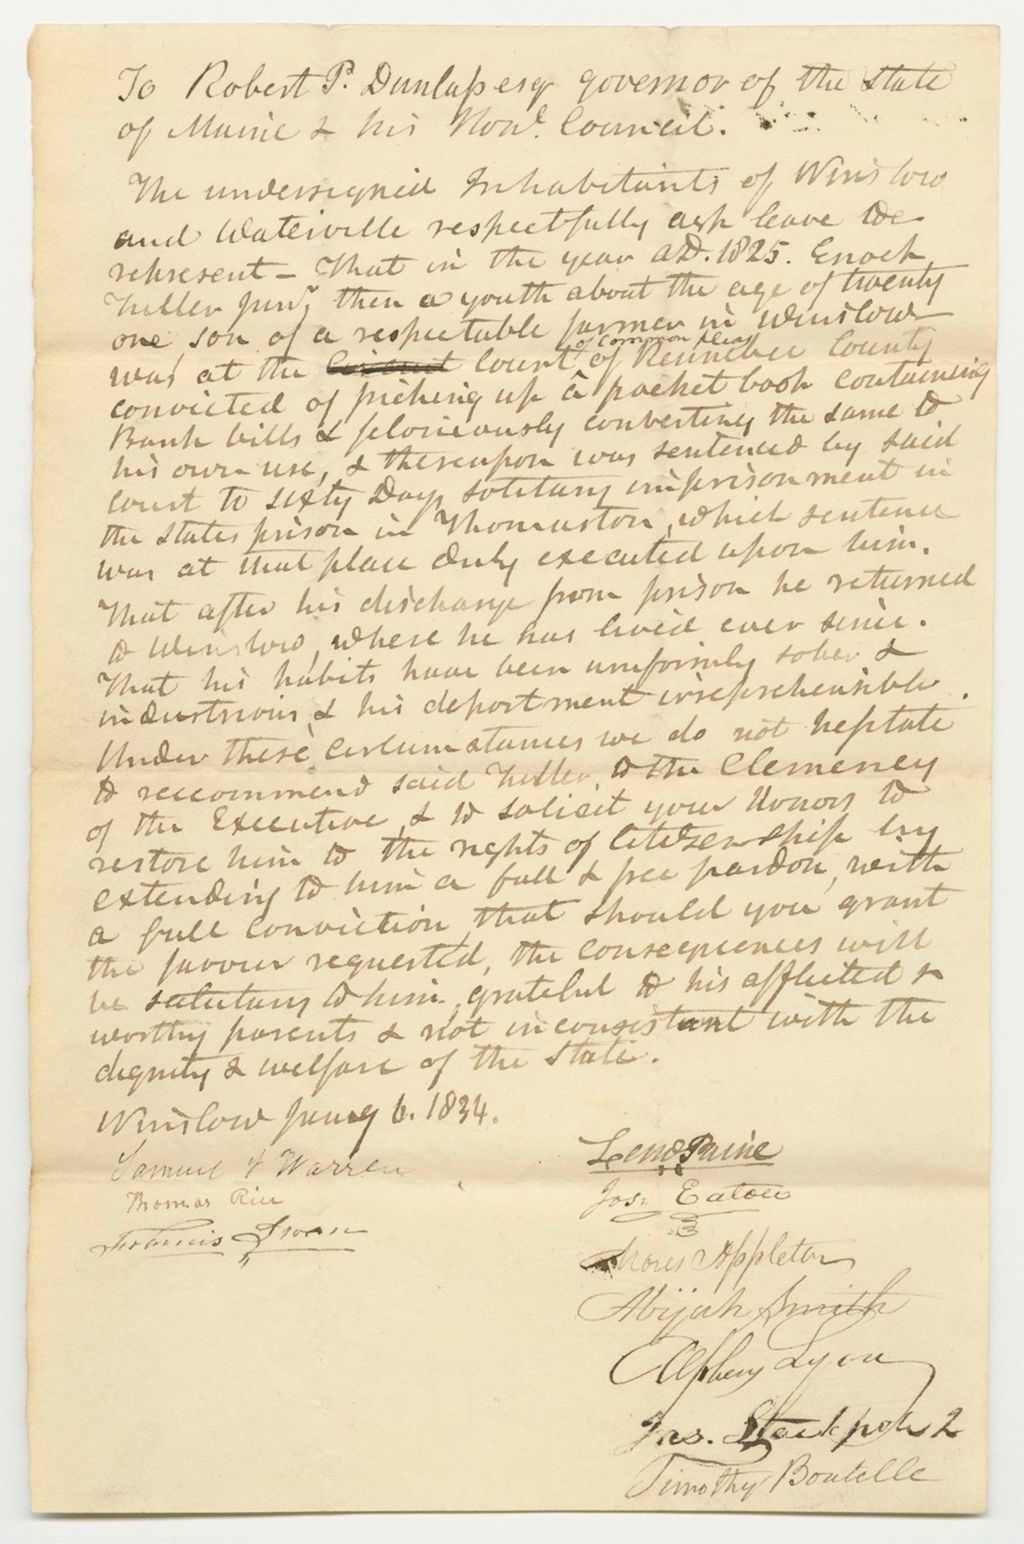 To Robert P. Dunlap esqr governor of the State
of Maine & his Honl. Council.
The undersigned Inhabitants of Winslow
and Waterville respectfully ask leave to
represent - That in the year AD. 1825. Enoch
Fuller Junr, then a youth about the age of twenty
one son of a respectable farmer in Winslow
was at the Circuit Court of common pleas of Kennebec County
convicted of picking up a pocket book containing
Bank bills & feloniously converting the same to
his own use, & thereupon was sentenced by said
court to sixty Days solitary imprisonment in
the States prison in Thomaston, which sentence
was at that place duly executed upon him.
That after his discharge from prison he returned
to Winslow, where he has lived ever since.
That his habits have been uniformly sober &
industrious, & his deportment irreprehensible.
Under these circumstances we do not hesitate
to reccommend said Fuller, to the Clemency
of the Executive, & to solicit your Honors to
restore him to the rights of Citizenship by
extending to him a full & free pardon, with
a full conviction, that should you grant
the favour requested, the consequences will
be salutary to him, grateful to his afflicted &
worthy parents & not inconsistant with the
dignity & welfare of the State.
Winslow Jany 6. 1834.
Samuel & Warren
Thomas Rice
Francis Swan
Lemd Paine
Jos. Eaton
Moses Appleton
Abijah Smith
Alpheus Lyon
Jas. Stackpole 2
Timothy Boutelle